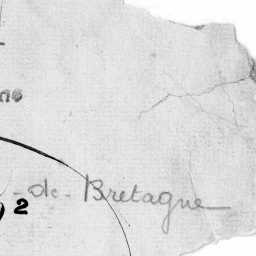 ns
-de-Bretagne
92